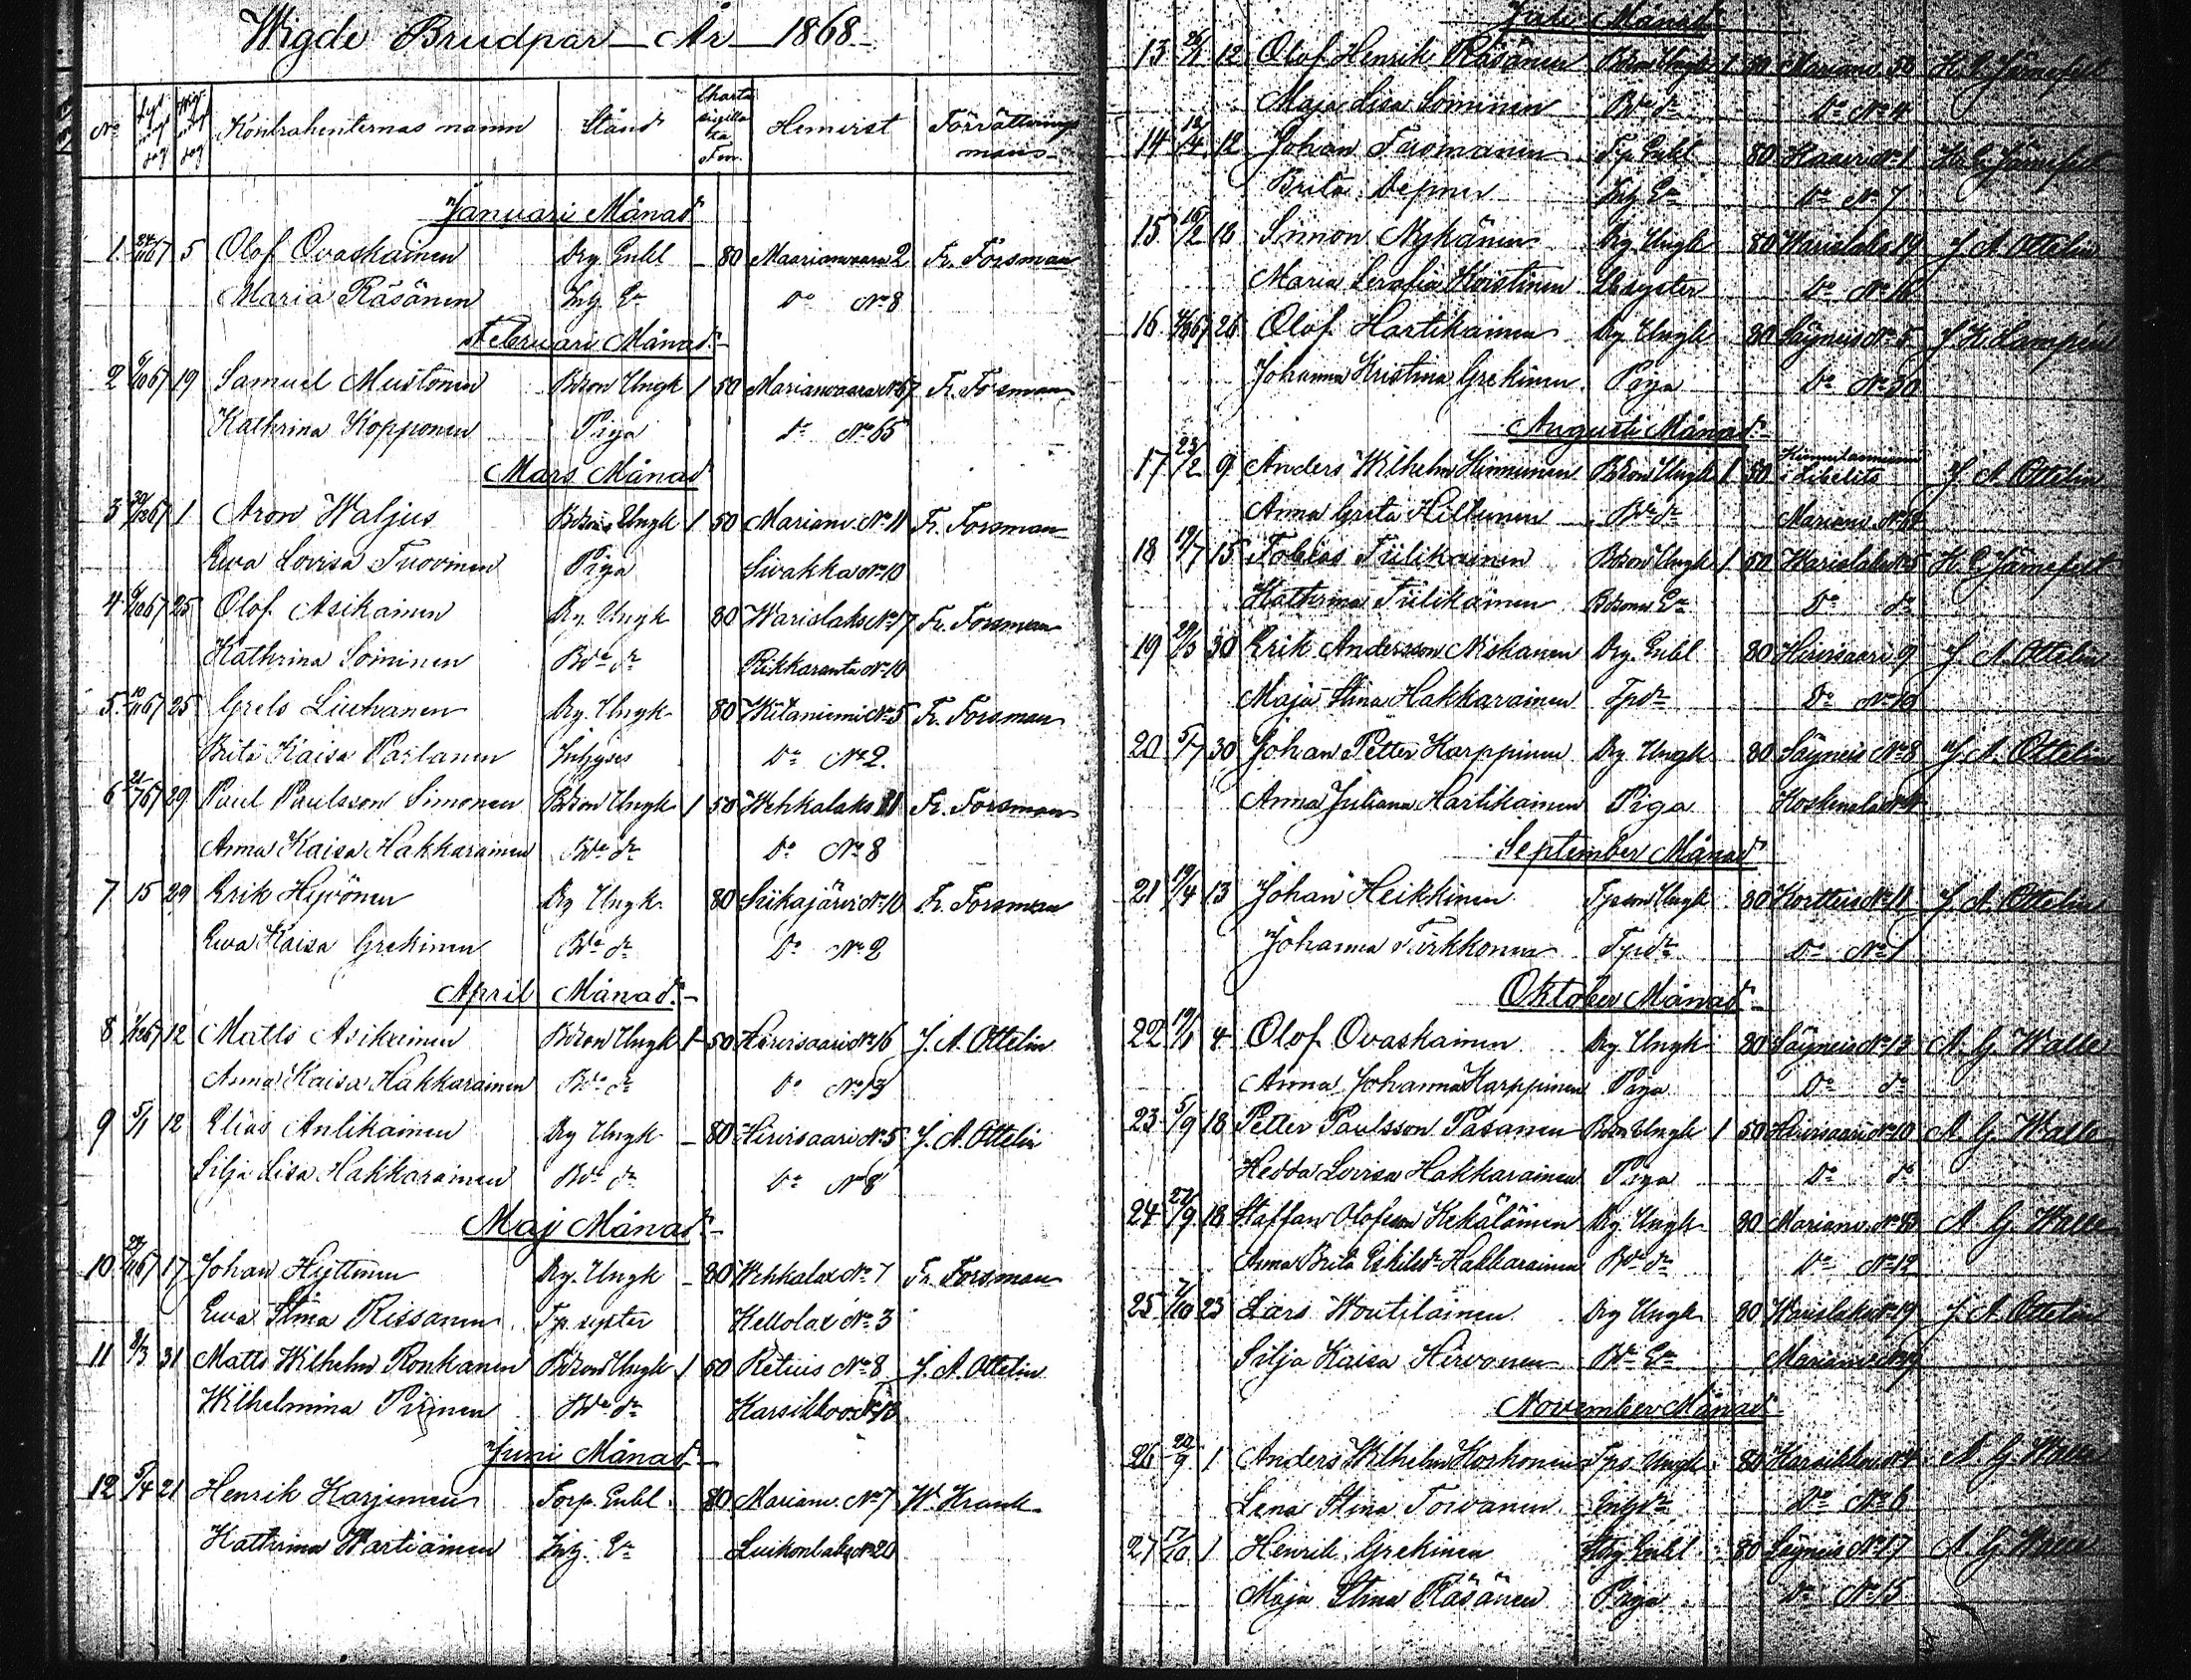 Wigde Brudpar År 1868
No Lysnings dag Wigningsdag Kontrahenternas namn Stånd Charta sigillata Fm. Hemvist Förrättnings mans
Januari Månad
1 24/11 67 5 Olof Ovaskainen Drg Enkl 80 Maarianvaara 2 Fr. Forsman
Maria Räsänen Inh. Ea Do No 8
Februari Månad
2 6/10 67 19 Samuel Mustonen Bdson Ungk 1 50 Marianvaara No 67 Fr. Forsman
Kathrina Kopponen Piga do No 65
Mars Månad
3 30/12 67 1 Aron Waljus Bdson Ungk 1 50 Marianv. No 11 Fr. Forsman
Ewa Lovisa Tuovinen Piga Sivakka No 10
4 6/10 67 25 Olof Asikainen Drg Ungk 80 Warislaks No 17 Fr. Forsman
Kathrina Soininen Bde dr Rikkaranta No 10
5 10/11 67 25 Grels Liutvanen Drg. Ungk 80 Witaniemi No 5 Fr. Forsman
Brita Kaisa Parlanen Inhyses Do No 2.
6 21/7 67 29 Paul Paulsson Simonen Bdson Ungk 1 50 Wehkalaks 11 Fr. Forsman
Anna Kaisa Hakkarainen Bde dr Do No 8
7 15 29 Erik Hyvönen Drg Ungk 80 Siikajärvi No 10 Fr. Forsman
Ewa Kaisa Grekinen Bde dr Do No 2
April Månad
8 1/12 67 12 Matts Asikainen Bdson Ungk 1 50 Hirvisaari No 16 J. A. Ottelin
Anna Kaisa Hakkarainen Bde dr Do No 13
9 5/1 12 Elias Antikainen Drg Ungk 80 Hirvisaari No 5 J. A. Ottelin
Silja Lisa Hakkarainen Bde dr Do No 8
Maj Månad
10 24/11 67 17 Johan Hyttinen Drg. Ungk 80 Wehkalax No 7 Fr. Forsman
Ewa Stina Rissanen Tp. syster Kellolax No 3
11 8/3 31 Matts Wilhelm Ronkanen Bdson Ungk 1 50 Retuis No 8 J. A. Ottelin
Wilhelmina Pirinen Bde dr Karsikkovaara No 13
Juni Månad
12 5/4 21 Henrik Karjunen Torp. Enkl. 80 Marianv. No 7 W. Krank
Kathrina Wartiainen Inh. Ea Luikonlaks No 20
Juli Månad
13 26/1 12 Olof Henrik Räsänen Bdson Ungk 1 50 Marianv 50 H. G. Järnefelt
Maja Lisa Soininen Bde dr Do No 4
14 12/4 12 Johan Tuomanen Tp. Enkl 80 Kaavi No 1 H. G. Järnefelt
Brita Inh Ea Do No 7
15 16/2 16 Simon Nykänen Drg Ungk 80 Warislaks 19 J. A. Ottelin
Maria Serafia Koistinen syster Do No 16
16 67 26 Olof Hartikainen Drg Ungk 80 Säyneis No 5 J. H. Lampen
Johanna Kristina Grekinen Piga Do No 30
Augusti Månad
17 23/2 9 Anders Wilhelm Hinnunen Bdson Ungk 1 50 i Libelits J. A. Ottelin
Anna Greta Hiltunen Bde dr Marianv No 64
18 19/7 15 Tobias Tiilikainen Bdson Ungk 1 50 Warislaks No 5 H. G. Järnefelt
Kathrina Tiilikainen Bdsons Ea Do do
19 29/3 30 Erik Andersson Niskanen Drg. Enkl 80 Hirvisaari 9 J. A. Ottelin
Maja Stina Hakkarainen Tpdr Do No 10
20 5/7 30 Johan Petter Karppinen Drg Ungk 80 Säyneis No 8 J. A. Ottelin
Anna Juliana Hartikainen Piga Koskenala No 4
September Månad
21 19/4 13 Johan Heikkinen Tpson Ungk 80 Kortteis No 11 J. A. Ottelin
Johanna Turkkonen Tpdr Do No 1
Oktober Månad
22 19/1 4 Olof Ovaskainen Drg. Ungk 80 Säyneis No 13 A. G. Walle
Anna Johanna Karppinen Piga Do do
23 5/9 18 Petter Paulsson Pasanen Bdson Ungk 1 50 Hirvisaari No 10 A. G. Walle
Hedda Lovisa Hakkarainen Piga Do do
24 27/9 18 Staffan Olofsson Kekäläinen Drg. Ungk 80 Marianv. No 43 A. G. Walle
Anna Brita Eskilsdr Hakkarainen Bde dr Do No 12
25 7/10 23 Lars Woutilainen Drg Ungk 80 Warislaks No 19 J. A. Ottelin
Silja Kaisa Hirvonen Bde Ea Marianv No 19
November Månad
26 20/9 1 Anders Wilhelm Korhonen Tps. Ungk 80 Karsikkov No 4 A. G. Walle
Lena Stina Toivanen Inhdr Do No 6
27 17/10 1 Henrik Grekinen Drg Enkl 80 Säyneis No 17 A. G. Walle
Maja Stina Räsänen Piga Do No 15